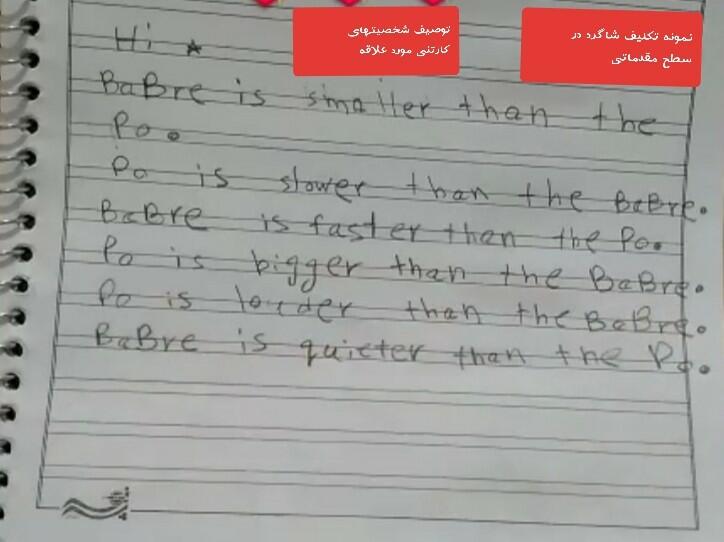 نمونه تکلیف شاگرد در
سطح مقدماتی
توصیف شخصیتهای
کارتنی مورد علاقه
Hi
BaBre is smaller than the
Po.
Po is slower than the BaBre.
BaBre is faster than the Po.
Po is bigger than the BaBre.
Po is louder than the BaBre.
BaBre is quieter than the Po.